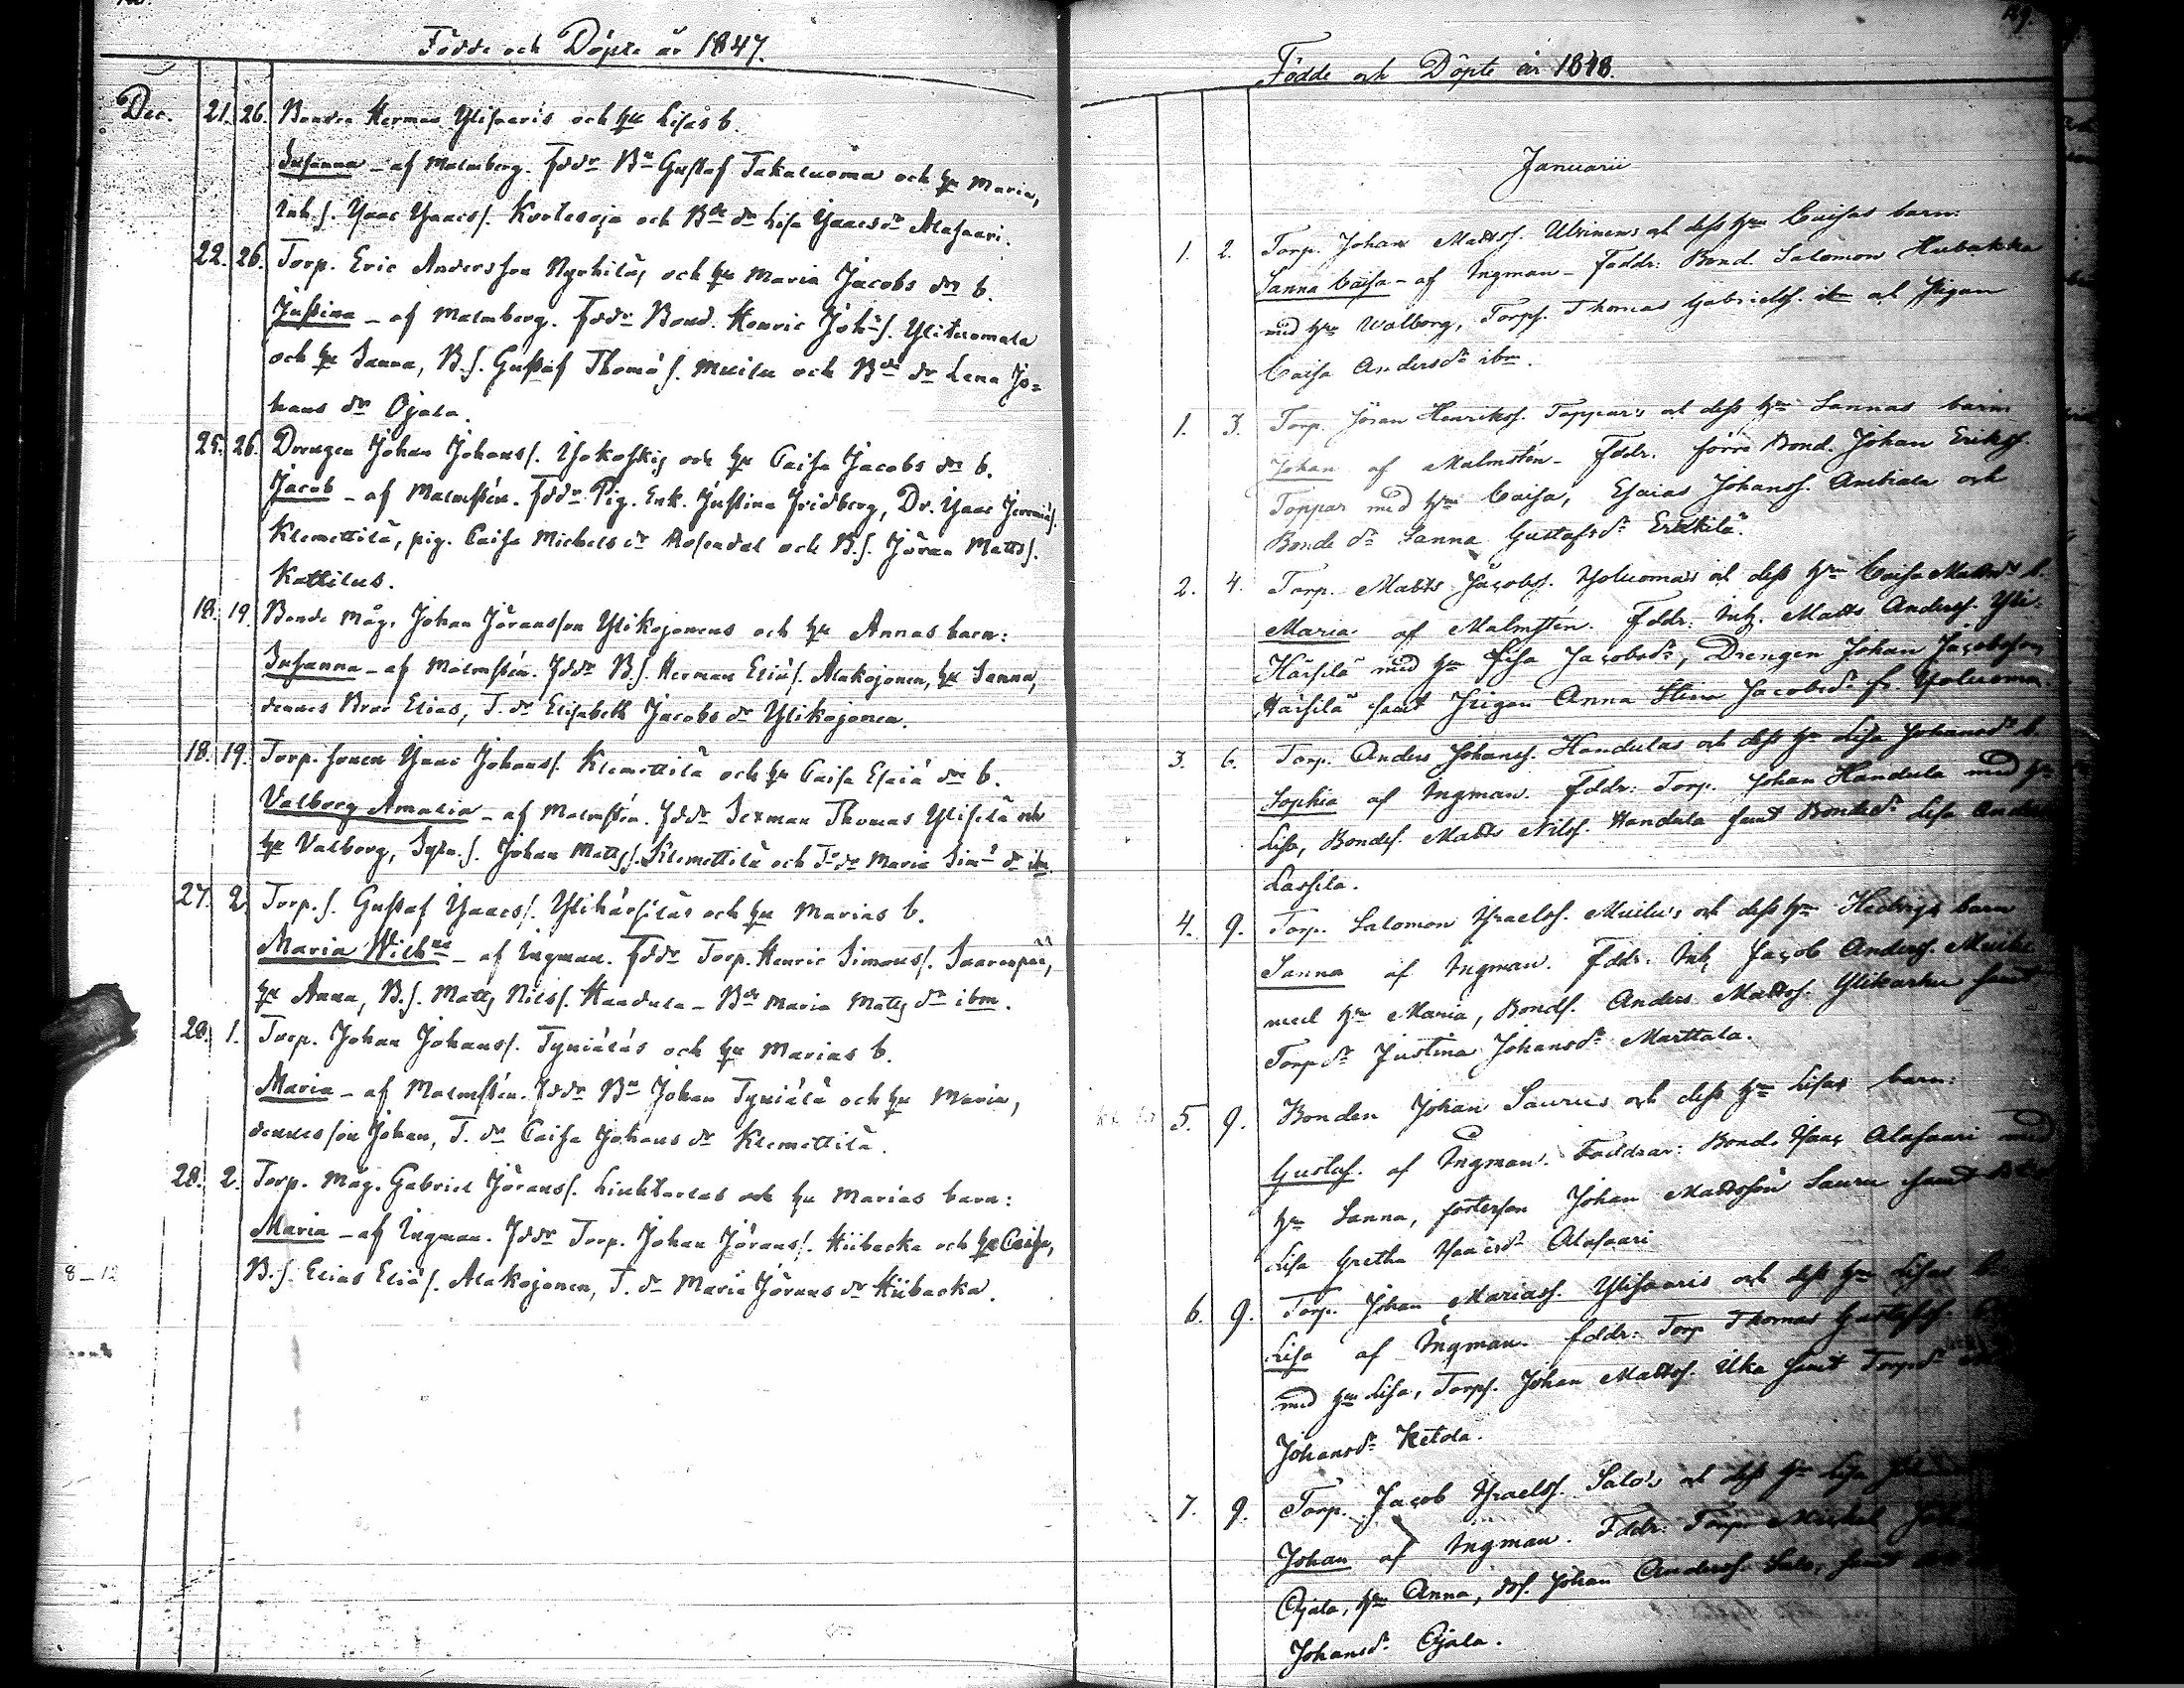 Födde och Döpte år 1847.
Dec. 21. 26. Bonden Herman Ylisaaris och hu Lisas b.
Susanna - af Malmberg. Fddr Bn Gustaf Takaluoma och hu Maria,
Inh.s. Isaac Isaacs. Kortesoja och Bde dr Lisa Isaacsdr Alasaari.
22. 26. Torp. Eric Andersson Nyrhiläs och hu Maria Jacobs drs b.
Justina - af Malmberg. Fddr Bond. Henric Johs. Ylituomala
och hu Sanna, B.s. Gustaf Thomäs. Muilu och Bde dr Lena Jo=
hans dr Ojala.
25. 26. Drengen Johan Johanss. Isokoskis och hu Caisa Jacobs drs b.
Jacob - af Malmstén. Fddr Pig. Enk. Justina Fridberg, Dr. Isaac Jeremiäs.
Klemettilä, pig. Caisa Michels dr Rosendal och B.s. Jöran Matts s.
Kattilus.
18. 19. Bonde måg. Johan Jöransson Ylikojonens och hu Annas barn:
Susanna - af Malmstén. Fddr B.s. Herman Eliäs. Alakojonen, hu Sanna,
dennes Bror Elias, T. dr Elisabeth Jacobs dr Ylikojonen.
18. 19. Torp. sonen Isaac Johanss. Klemettilä och hu Caisa Esaiä drs b.
Valborg Amalia - af Malmstén. Fddr Sexman Thomas Ylisilä och
hu Valborg, Sytn.s. Johan Matts s. Klemettilä och T dr Maria Sim dr ibm.
27. 2. Torp.s. Gustaf Isaacs. Ylihärsiläs och hu Marias b.
Maria Wilhna - af Ingman. Fddr Torp. Henric Simonss. Saarenpää,
hu Anna, B.s. Matts Nilss. Handula - Bde Maria Matts dr ibm.
28. 1. Torp. Johan Johanss. Tyniäläs och hu Marias b.
Maria - af Malmstén. Fddr Bn Johan Tyniälä och hu Maria,
dennes son Johan, T. dr Caisa Johans dr Klemettilä.
28. 2. Torp. Måg. Gabriel Jöranss. Liuhtarlas och hu Marias barn:
Maria - af Ingman. Fddr Torp. Johan Jöranss. Hiibacka och hu Caisa,
B.s. Elias Eliäs. Alakojonen, T. dr Maria Jörans dr Hiibacka.
Födde och Döpte år 1848.
Januarii
1. 2. Torp. Johan Mattss. Ulvinens och dess hru Caisas barn:
Sanna Caisa - af Ingman - Faddr: Bond. Salomon Hubakka
med hru Walborg, Torps. Thomas Gabrielss. och Pigan
Caisa Andersdr ibm.
1. 3. Torp. Jöran Henrikss. Toppar's och dess hru Sannas barn
Johan af Malmstén - Fddr. förre Bond. Johan Erikss.
Toppar med hru Caisa, Esaias Johanss. Anttiala och
Bonde dr Sanna Gustafsdr Erkkilä.
2. 4. Torp. Matts Jacobss. Isoluoma's och dess hru Caisa Mattsdrs b.
Maria af Malmstén. Fddr: Inh. Matts Anderss. Yli-
Härsilä med hru Lisa Jacobsdr, Drengen Johan Jacobsson
Härsilä samt Pigan Anna Stina Jacobsdr fr. Isoluoma.
3. 6. Torp. Anders Johanss. Handulas och dess hru Lisa Johansdrs b.
Sophia af Ingman. Fddr: Torp. Johan Handula med hru
Lisa, Bondes. Matts Nilss. Handula samt Bondedr Lisa
Lassila.
4. 9. Torp. Salomon Israelss. Muilu's och dess hru Hedvigs barn
Sanna af Ingman. Fddr. Inh. Jacob Anderss. Muilu
med hru Maria, Bonds. Anders Mattss. Ylikarhu samt
Torpdr Justina Johansdr Marttala.
5. 9. Bonden Johan Saurus och dess hru Lisas barn:
Gustaf. af Ingman. Faddrar: Bond. Isaac Alasaari med
hru Sanna, fosterson Johan Mattsson Sauru samt
Lisa Gretha Isaacsdr Alasaari
6. 9. Torp. Johan Mariass. Ylisaaris och dess hru Lisas
Lisa af Ingman. Fddr: Torp Thomas Gustafss.
med hru Lisa, Torps. Johan Mattss. Uka samt Torpdr
Johansdr Ketola.
7. 9. Torp. Jacob Israelss. Salo's och dess hru Lisa
Johan af Ingman. Fddr: Torp. Michel
Ojala, hru Anna, Johan Anderss. Salo, samt
Johansdr Ojala.